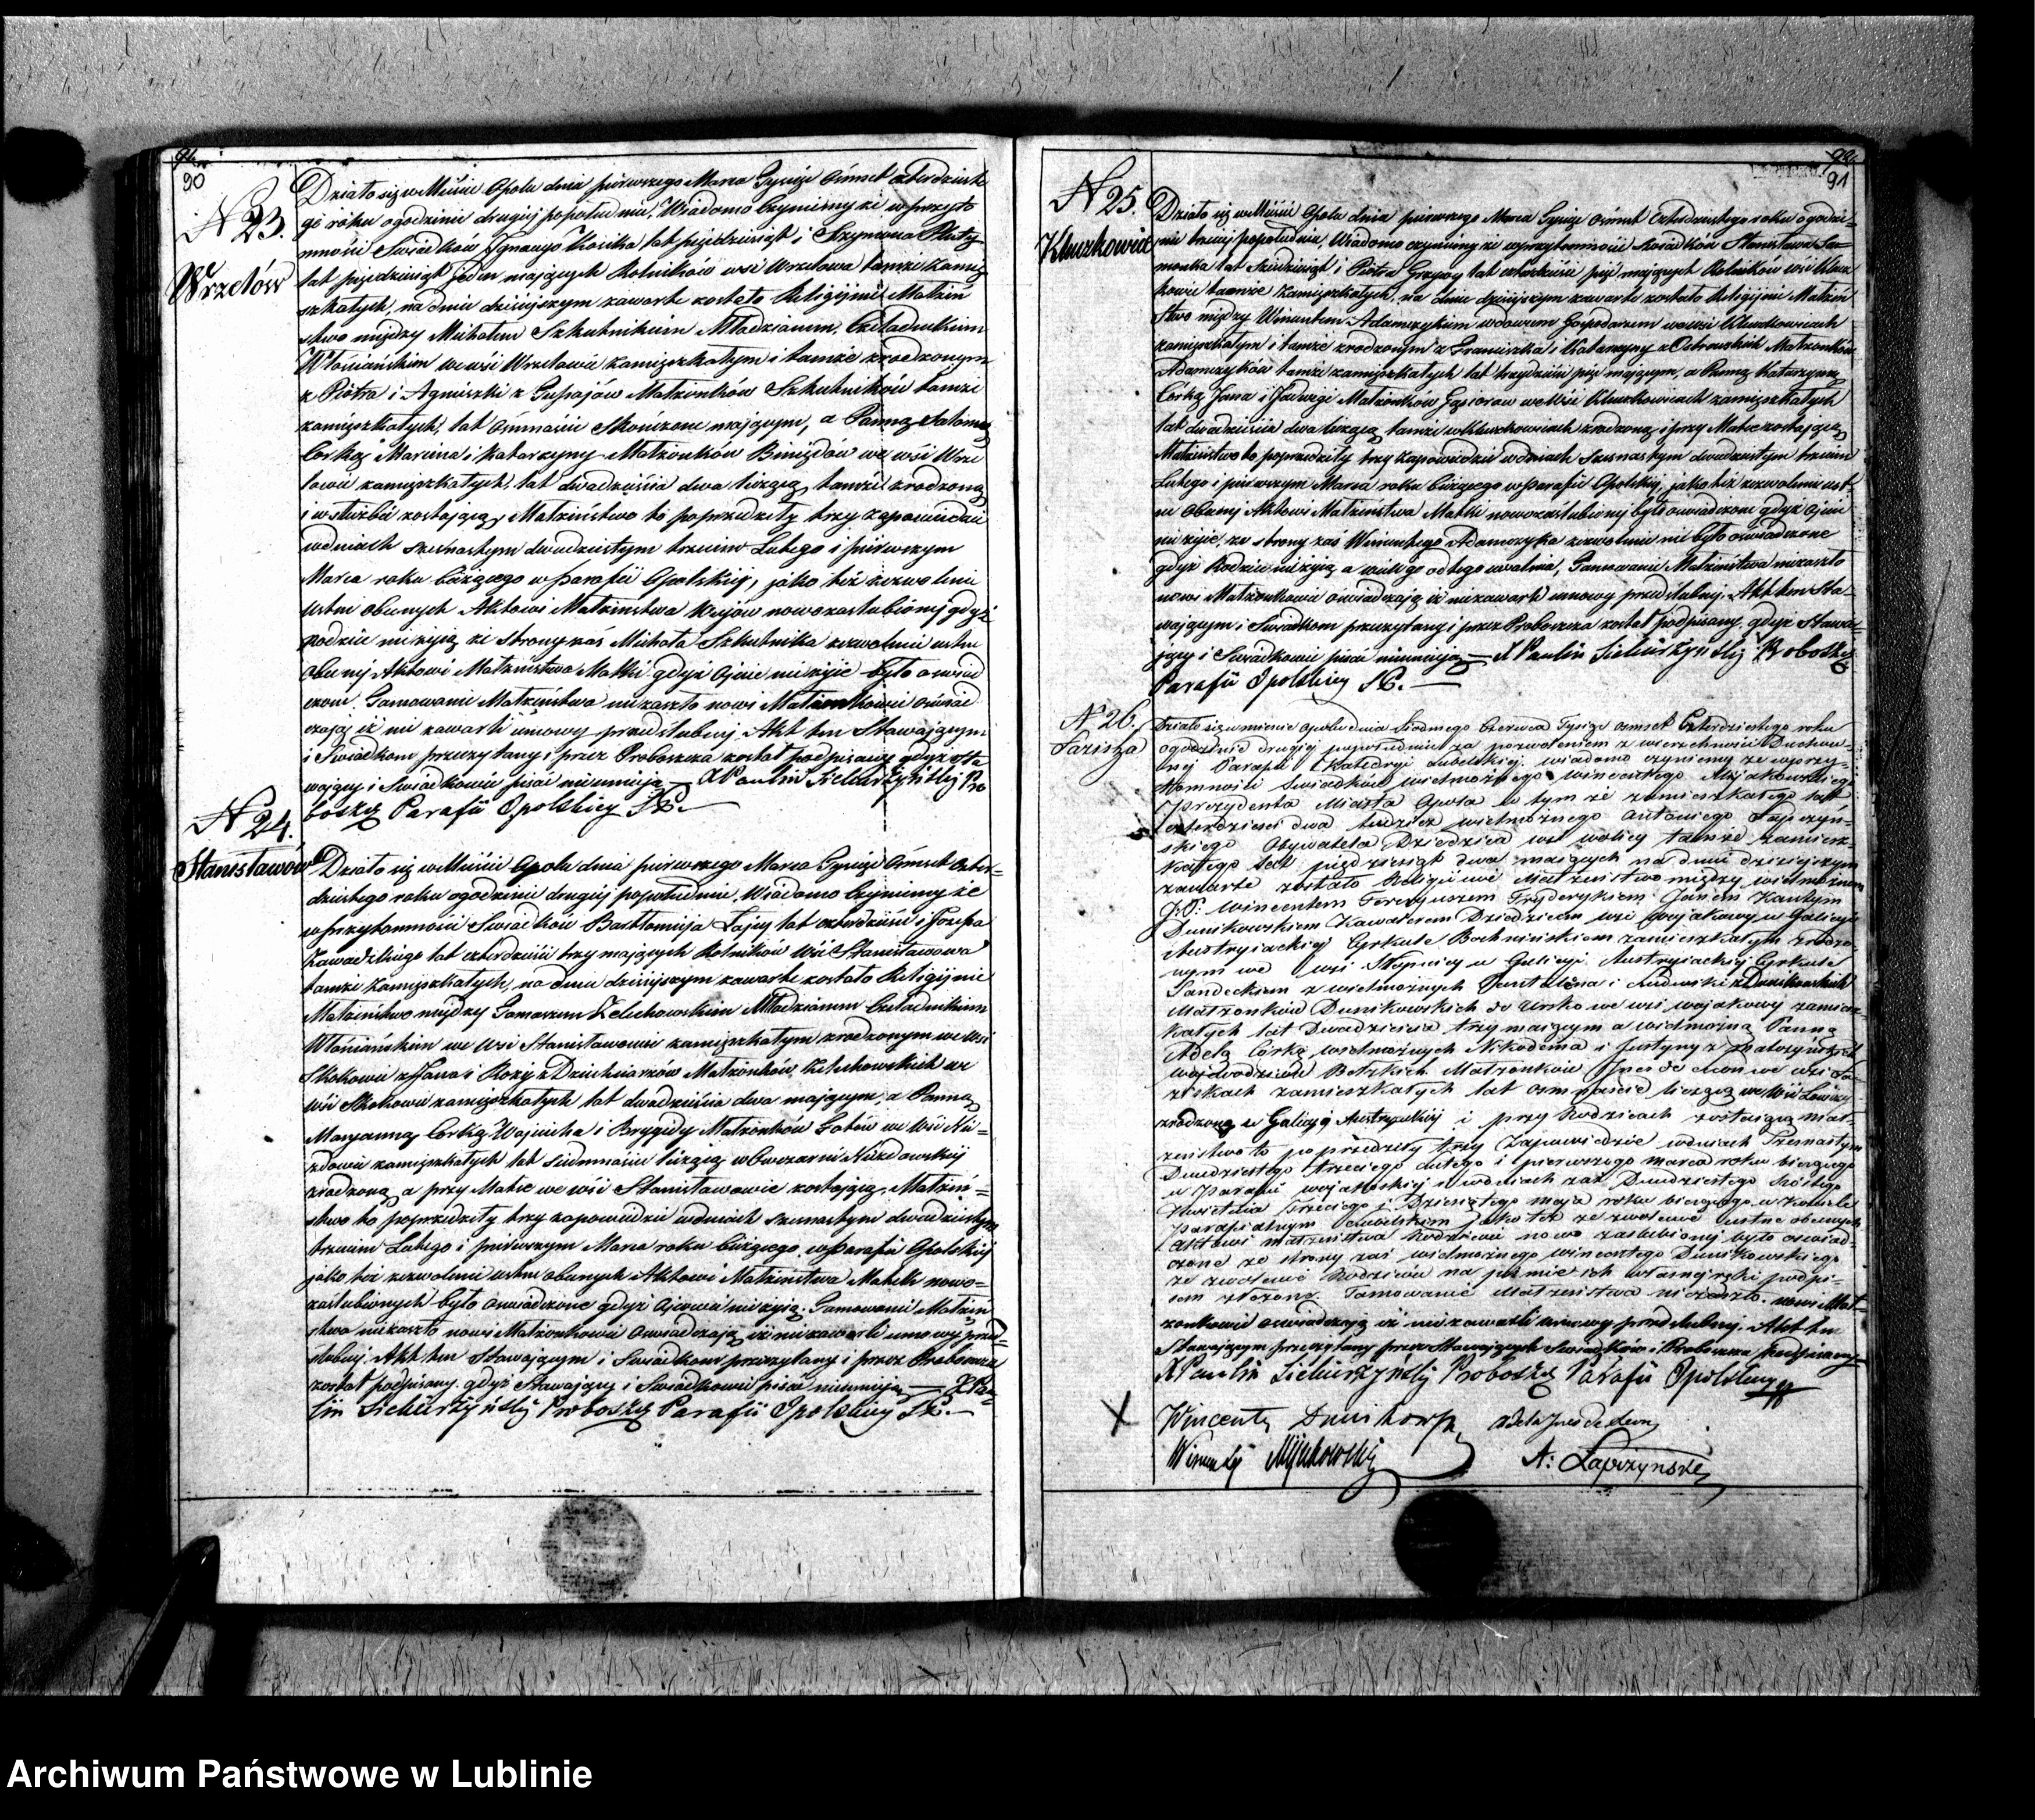 90
N 23.
Wrzelów
Działo się w Mieście Opolu dnia pierwszego Marca Tysiąc Ośmset czterdzieste
go roku o godzinie drugiej popołudniu, Wiadomo Czyniemy że w przyto
mności Świadków Ignacego Kosika lat pięćdziesiąt i Szymona
lat pięćdziesiąt jeden mających Rolników wsi Wrzelowa tamże zamię
szkałych, na dniu dzisiejszym zawarte zostało Religijne Małżeń
stwo między Michałem Szkutnikiem Młodzianem, Czeladnikiem
Włościańskim we wsi Wrzelowie zamięszkałym i tamże zrodzonym
z Piotra i Agnieszki z Małżonków Szkutników tamże
zamięszkałych, lat ośmnaście skończone mającym, a Panną Salomeą
Córką Marcina i Katarzyny Małżonków we wsi Wrze
lowie zamięszkałych, lat dwadzieścia dwa liczącą, tamże zrodzoną
i w służbie zostającą, Małżeństwo to poprzedziły trzy zapowiedzie
w dniach szesnastym dwudziestym trzecim Lutego i pierwszym
Marca roku bieżącego w Parafii Opolskiej, jako też zezwolenie
ustne obecnych Aktowi Małżeństwa nowozaślubionej gdyż
rodzice nieżyją ze strony zaś Michała Szkutnika zezwolenie ustne
obecnej Aktowi Małżeństwa Matki gdyż ojciec nieżyje było oświad
czone. Tamowanie Małżeństwa niezaszło nowi Małżonkowie oświad
czają iż nie zawarli umowy przedślubnej. Akt ten Stawającym
i Świadkom przeczytany i przez Proboszcza został podpisany gdyż sta
wający i Świadkowie pisać nieumieją — X Paulin Siekierzyński Pro
boszcz Parafii Opolskiey
N 24.
Stanisławów
Działo się w Mieście Opolu dnia pierwszego Marca Tysiąc Ośmset Czter-
dziestego roku o godzinie drugiej popołudniu, Wiadomo Czyniemy że
w Przytomności Świadków Bartłomieja Zając lat czterdzieści i Józefa
Zawadzkiego lat czterdzieści trzy mających Rolników Wsi Stanisławowa
tamże zamięszkałych, na dniu dzisiejszym zawarte zostało Religijne
Małżeństwo między Tomaszem Żelechowskim Młodzianem Czeladnikiem
Włościańskim we Wsi Stanisławowie zamięszkałym zrodzonym we Wsi
Skokowie z Jana i Róży z Małżonków Żelechowskich we
wsi Skokowie zamięszkałych lat dwadzieścia dwa mającym, a Panną
Maryanną Córką Wojciecha i Brygidy Małżonków we Wsi Niz=
dowie zamięszkałych lat siedmnaście liczącą w Owczarni Niezdowskiej
zrodzoną a przy Matce we wsi Stanisławowie zostającą, Małżeń=
stwo to poprzedziły trzy zapowiedzie w dniach szesnastym dwudziestym
trzecim Lutego i pierwszym Marca roku bieżącego, w Parafii Opolskiej
jako też zezwolenie ustne obecnych Aktowi Małżeństwa Matek nowo=
zaślubionych było oświadczone gdyż ojcowie nieżyją. Tamowanie Małżeń
stwa niezaszło nowi Małżonkowie oświadczają iż niezawarli umowy przed=
ślubnej. Akt ten Stawającym i Świadkom przeczytany i przez Proboszcza
został podpisany gdyż Stawający i Świadkowie pisać nieumieją — X Pau=
lin Siekierzyński Proboszcz Parafii Opolskiey
91
N 25.
Kluczkowice
Działo się w Mieście Opolu dnia pierwszego Marca Tysiąc Ośmset Czterdziestego roku o godzi=
nie trzeciej popołudniu, Wiadomo czyniemy że w przytomności Świadków Stanisława
lat sześćdziesiąt i Piotra Grzywy lat czterdzieści pięć mających Rolników wsi Klucz
kowic tamże zamięszkałych, na dniu dzisiejszym zawarte zostało Religijne Małżeń
stwo między Wincentem Adamczykiem wdowcem Gospodarzem we wsi Kluczkowicach
zamięszkałym i tamże zrodzonym z Franciszka i Katarzyny z Ostrowskich Małżonków
Adamczyków tamże zamięszkałych lat trzydzieści pięć mającym, a Panną Katarzyną
Córką Jana i Jadwigi Małżonków Gąsiorów we Wsi Kluczkowicach zamięszkałych
lat dwadzieścia dwa liczącą tamże w Kluczkowicach zrodzoną i przy Matce zostającą
Małżeństwo to poprzedziły trzy zapowiedzie w dniach szesnastym dwudziestym trzecim
Lutego i pierwszym Marca roku bieżącego w Parafii Opolskiej, jako też zezwolenie ust=
ne obecnej Aktowi Małżeństwa Matki nowozaślubionej było oświadczone gdyż ojciec
nie żyje, ze strony zaś Wincentego Adamczyka zezwolenie nie było oświadczone
gdyż Rodzice nieżyją a wiek go od tego uwalnia, Tamowanie Małżeństwa niezaszło
nowi Małżonkowie oświadczają iż niezawarli umowy przedślubnej. Akt ten Sta-
wającym i Świadkom przeczytany i przez Proboszcza został podpisany, gdyż Stawa=
jący i Świadkowie pisać nieumieją — X Paulin Siekierzyński Proboszcz
Parafii Opolskiey
N 26.
Działo się w mieście Opolu dnia Siódmego Czerwca Tysiąc Ośmset Czterdziestego roku
o godzinie drugiej popołudniu za pozwoleniem z wierzchności Duchow=
nej Parafii Katedry Lubelskiej. wiadomo czyniemy że w przy-
tomności Świadków wielmożnego wincentego Mijakowskiego
Prezydenta Miasta Opola w tym że zamieszkałego lat
czterdzieści dwa tudzież wielmożnego Antoniego Łapczyń-
skiego Obywatela Dziedzica wsi wolicy tamże zamiesz-
kałego lat pięćdziesiąt dwa maiących na dniu dzisiejszym
zawarte zostało Religijne Małżeństwo między wielmożnym
J:P: Wincentem Fryderykiem Janem Kantym
Dunikowskiem Kawalerem Dziedzicem wsi wojakowy w Galicyi
Austryiackiej Cyrkule Bochnińskiem zamieszkałym zrodzo-
nym we wsi Słupnicy w Galicyi Austryiackiej Cyrkule
Sandeckiem z wielmożnych i Ludwiki z Dunikowskich
Małżonków Dunikowskich we wsi wojakowy zamiesz-
kałych lat Dwadzieścia trzy maiącym a wielmożną Panną
Adelą Córką wielmożnych Nikodema i Justyny z
Małżonków Jnes de Leon we wsi
zamieszkałych lat ośmnaście liczącą
zrodzoną w Galicyi Austryackiej i przy Rodzicach zostaiącą Mał-
żeństwo to poprzedziły trzy Zapowiedzie w dniach Szesnastym
Dwudziestego trzeciego lutego i pierwszego marca roku bieżącego
w Parafii wojakoskiej w dniach zaś Dwudziestego Szóstego
Kwietnia Trzeciego i Dziesiątego maja roku bieżącego w Kościele
Parafialnym jako też zezwolenie ustne obecnych
aktowi małżeństwa Rodziców nowo zaślubionej było oświad-
czone ze strony zaś wielmożnego wincentego Dunikowskiego
zezwolenie Rodziców na piśmie ich własnej ręki podpi-
sem złożone. Tamowanie Małżeństwa niezaszło. nowi Mał-
żonkowie oświadczają iż niezawarli umowy przedślubnej. Akt ten
Stawającym przeczytany przez Stawających Świadków i Proboszcza podpisany
X Paulin Siekierzyński Proboszcz Parafii Opolskiey
Wincenty Dunikowski Adela Jnes de Leon
Wincenty Mijakowski A: Łapczyński
Archiwum Państwowe w Lublinie